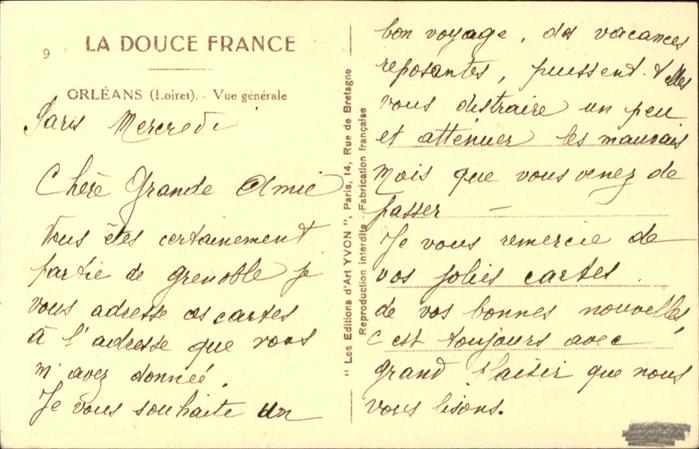 9
LA DOUCE FRANCE
ORLÉANS (Loiret). - Vue générale
Paris Mercredi
Chère Grande Amie
Vous êtes certainement
partie de Grenoble je
vous adresse ces cartes
à l'adresse que vous
m'avez donnée.
Je vous souhaite un
"Les Editions d'Art YVON", Paris, 14, Rue de Bretagne
Reproduction interdite. Fabrication française
bon voyage, des vacances
reposantes, puissent-elles
vous distraire un peu
et atténuer les mauvais
mois que vous venez de
passer –
Je vous remercie de
vos jolies cartes.
de vos bonnes nouvelles
c'est toujours avec
grand plaisir que nous
vous lisons.